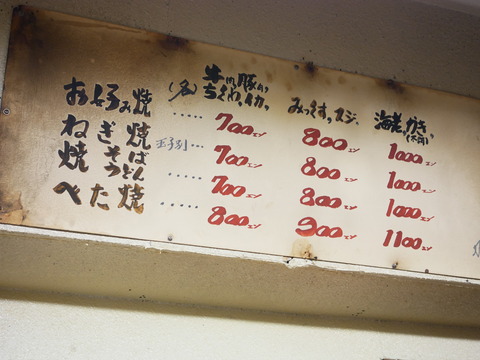 牛肉,豚肉,
(各)ちくわ,イカ, みっくす,スジ, 海老,かき,
お好み焼 ..... 700エン 800エン 1000エン
ねぎ焼 玉子別 ... 700エン 800エン 1000エン
焼そば うどん ..... 700エン 800エン 1000エン
べた焼 ..... 800エン 900エン 1100エン